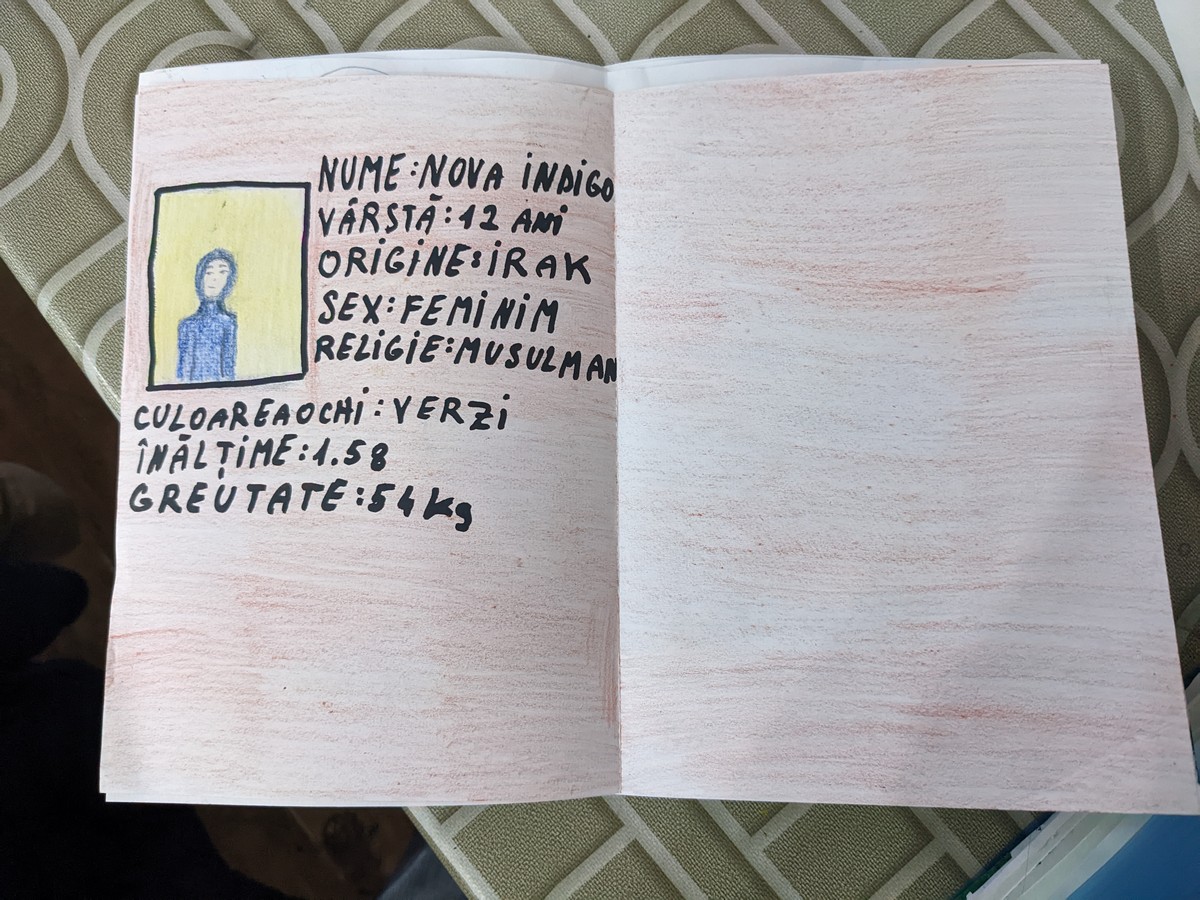 NUME:NOVA INDIGO
VÂRSTĂ:12 ANI
ORIGINE:IRAK
SEX:FEMINIM
RELIGIE:MUSULMAN
CULOAREAOCHI:VERZI
ÎNĂLȚIME:1.58
GREUTATE:54kg